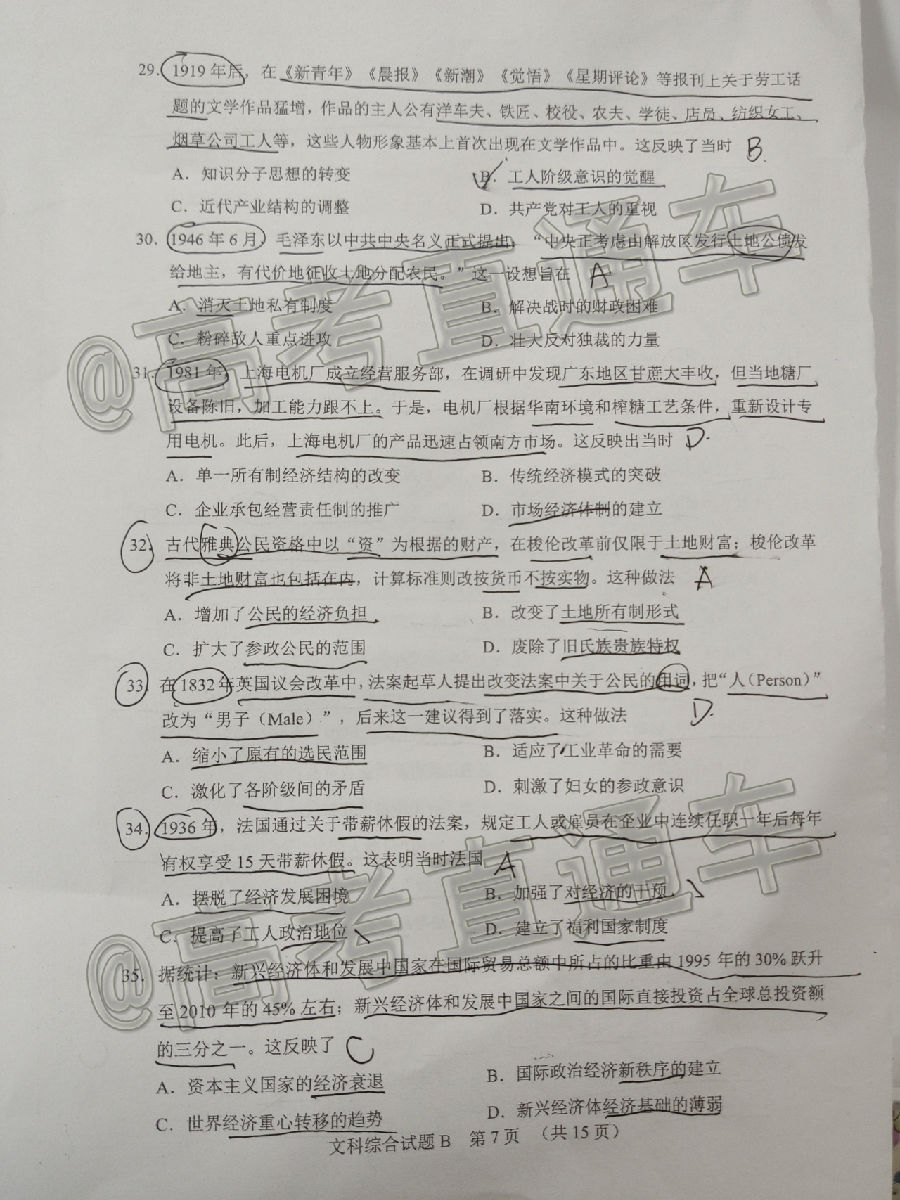 29. 1919 年后，在《新青年》《晨报》《新潮》《觉悟》《星期评论》等报刊上关于劳工话
题的文学作品猛增，作品的主人公有洋车夫、铁匠、校役、农夫、学徒、店员、纺织女工、
烟草公司工人等，这些人物形象基本上首次出现在文学作品中。这反映了当时 B
A．知识分子思想的转变 B．工人阶级意识的觉醒
C．近代产业结构的调整 D．共产党对工人的重视
30. 1946 年 6 月，毛泽东以中共中央名义正式提出，“中央正考虑由解放区发行土地公债发
给地主，有代价地征收土地分配农民。”这一设想旨在 A
A．消灭土地私有制度 B．解决战时的财政困难
C．粉碎敌人重点进攻 D．壮大反对独裁的力量
31. 1981 年，上海电机厂成立经营服务部，在调研中发现广东地区甘蔗大丰收，但当地糖厂
设备陈旧，加工能力跟不上。于是，电机厂根据华南环境和榨糖工艺条件，重新设计专
用电机。此后，上海电机厂的产品迅速占领南方市场。这反映出当时 D
A．单一所有制经济结构的改变 B．传统经济模式的突破
C．企业承包经营责任制的推广 D．市场经济体制的建立
32. 古代雅典公民资格中以“资”为根据的财产，在梭伦改革前仅限于土地财富；梭伦改革
将非土地财富也包括在内，计算标准则改按货币不按实物。这种做法 A
A．增加了公民的经济负担 B．改变了土地所有制形式
C．扩大了参政公民的范围 D．废除了旧氏族贵族特权
33. 在 1832 年英国议会改革中，法案起草人提出改变法案中关于公民的用词，把“人（Person）”
改为“男子（Male）”，后来这一建议得到了落实。这种做法 D
A．缩小了原有的选民范围 B．适应了工业革命的需要
C．激化了各阶级间的矛盾 D．刺激了妇女的参政意识
34. 1936 年，法国通过关于带薪休假的法案，规定工人或雇员在企业中连续任职一年后每年
有权享受 15 天带薪休假。这表明当时法国 A
A．摆脱了经济发展困境 B．加强了对经济的干预
C．提高了工人政治地位 D．建立了福利国家制度
35. 据统计：新兴经济体和发展中国家在国际贸易总额中所占的比重由 1995 年的 30% 跃升
至 2010 年的 45% 左右；新兴经济体和发展中国家之间的国际直接投资占全球总投资额
的三分之一。这反映了 C
A．资本主义国家的经济衰退 B．国际政治经济新秩序的建立
C．世界经济重心转移的趋势 D．新兴经济体经济基础的薄弱
文科综合试题 B 第 7 页 （共 15 页）
@高考直通车
@高考直通车